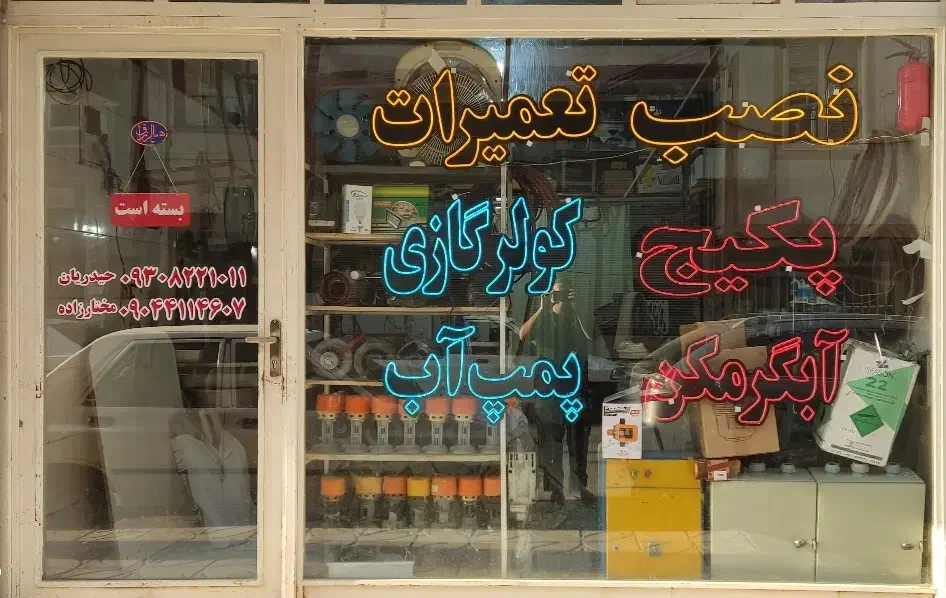 نصب تعمیرات
پکیج
کولر گازی
آبگرمکن
پمپ آب
بسته است
۰۹۳۰۸۲۲۱۰۱۱ حیدریان
۰۹۰۴۴۱۱۴۶۰۷ مختارزاده
SEASON
22